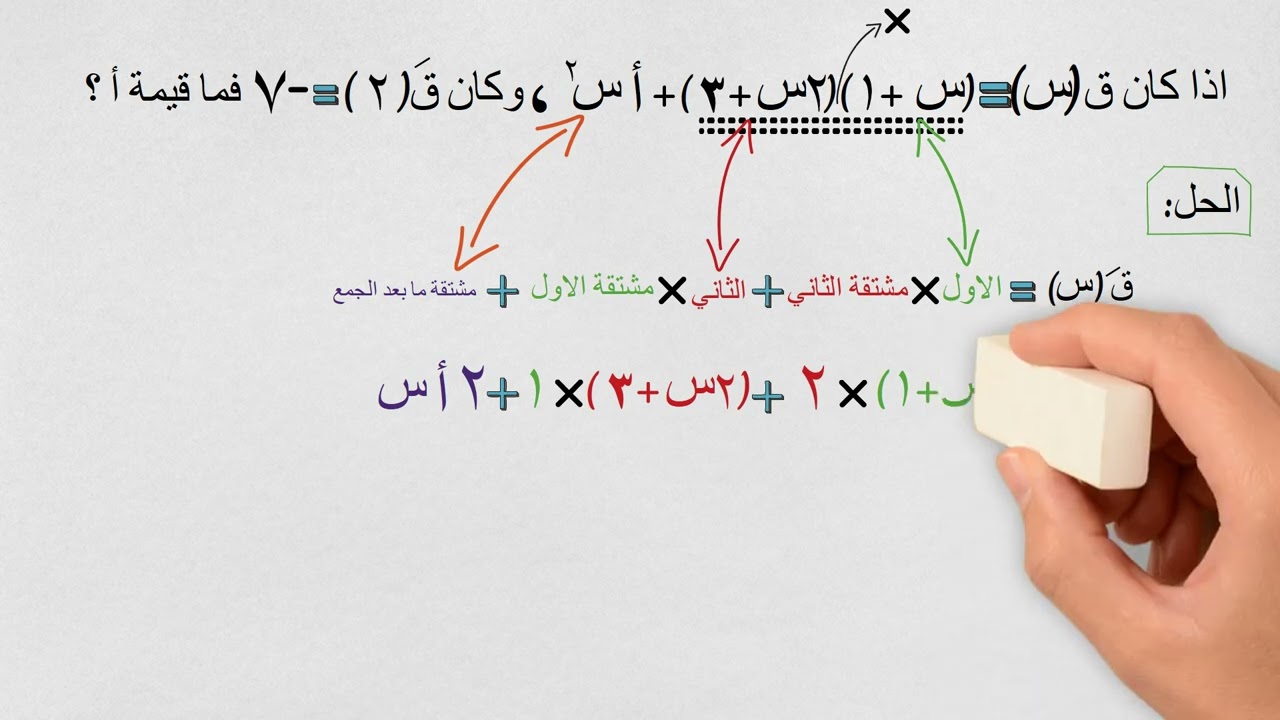 ×
اذا كان ق(س)=(س +١)(٢س+٣)+ أ س٢ ، وكان قَ(٢)=-٧ فما قيمة أ ؟
الحل:
قَ(س) = الاول × مشتقة الثاني + الثاني × مشتقة الاول + مشتقة ما بعد الجمع
س+١) × ٢ + (٢س+٣) × ١ + ٢ أ س